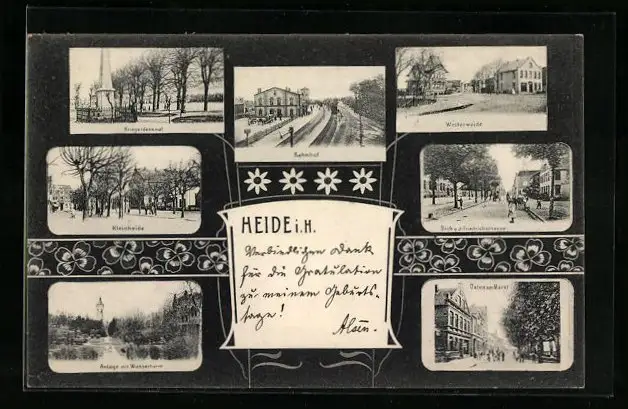 Kriegerdenkmal
Bahnhof
Westerweide
Kleinheide
HEIDE i. H.
Blick a. d. Friedrichstrasse
Verbindlichen Dank
für die Gratulation
zu meinem Geburts-
tage!
Anlage mit Wasserturm
Osten am Markt